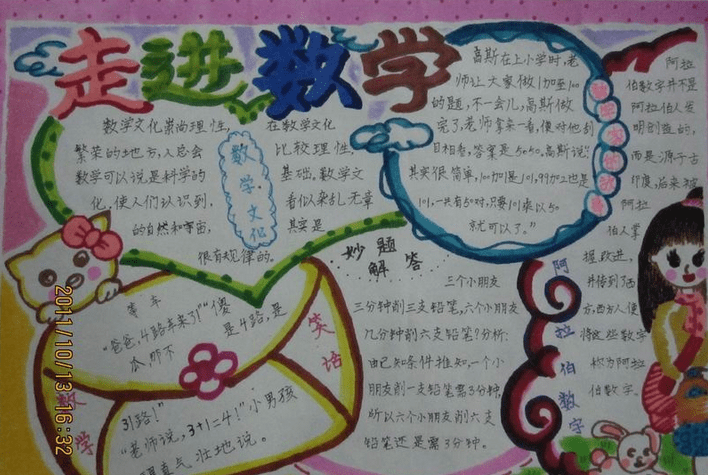 走进数学
数学文化崇尚理性, 在数学文化
繁荣的地方,人总会 比较理性,
数学可以说是科学的 基础,数学文
化,使人们认识到, 看似杂乱无章
的自然和宇宙, 其实是
很有规律的.
数学·文化
高斯在上小学时,老
师让大家做1加至100
的题,不一会儿,高斯做
完了,老师拿来一看,便对他刮
目相看,答案是5050,高斯说:"
其实很简单,100加1是101,99加2也是
101,一共有50对,只要101乘以50
就可以了。"
数学家的故事
阿拉
伯数字并不是
阿拉伯人发
明创造的,
而是源于古
印度,后来被
阿拉
伯人掌
握、改进,
并传到了西
方,西方人便
将这些数字
称为阿拉
伯数字.
阿拉伯数字
妙题
解答
三个小朋友
三分钟削三支铅笔,六个小朋友
几分钟削六支铅笔?分析:
由已知条件推知,一个小
朋友削一支铅笔需3分钟,
所以六个小朋友削六支
铅笔还是需3分钟。
等车
"爸爸,4路车来了!""傻
瓜,那不是4路,是
31路!"
"老师说,3+1=4!"小男孩
理直气壮地说。
数学
笑话
2011/10/13 16:32